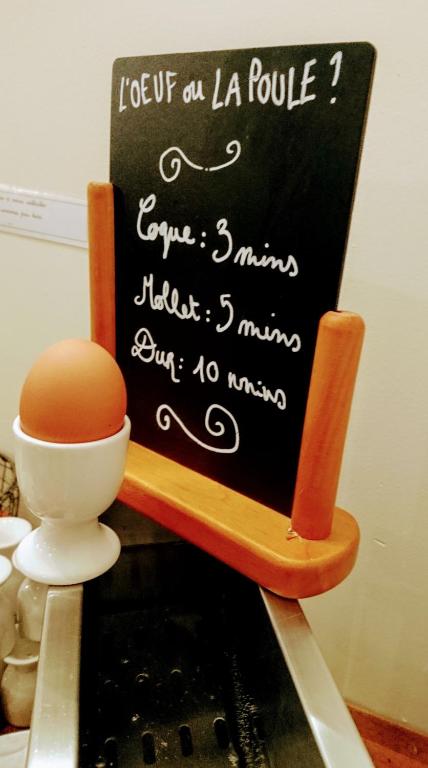 L'OEUF ou LA POULE ?
Coque : 3 mins
Mollet : 5 mins
Dur : 10 mins